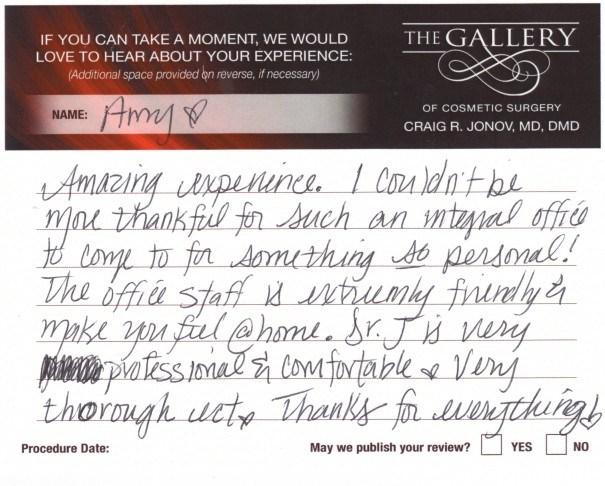 IF YOU CAN TAKE A MOMENT, WE WOULD
LOVE TO HEAR ABOUT YOUR EXPERIENCE:
(Additional space provided on reverse, if necessary)
NAME: Amy
THE GALLERY
OF COSMETIC SURGERY
CRAIG R. JONOV, MD, DMD
Amazing experience. I couldn't be
more thankful for such an integral office
to come to for something so personal!
The office staff is extremly friendly &
make you feel @home. Dr. J is very
professional & comfortable & Very
thorough ect. Thanks for everything
Procedure Date:
May we publish your review? YES NO